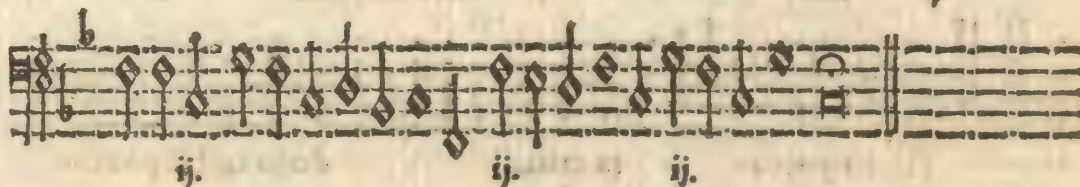 ij. ij. ij.